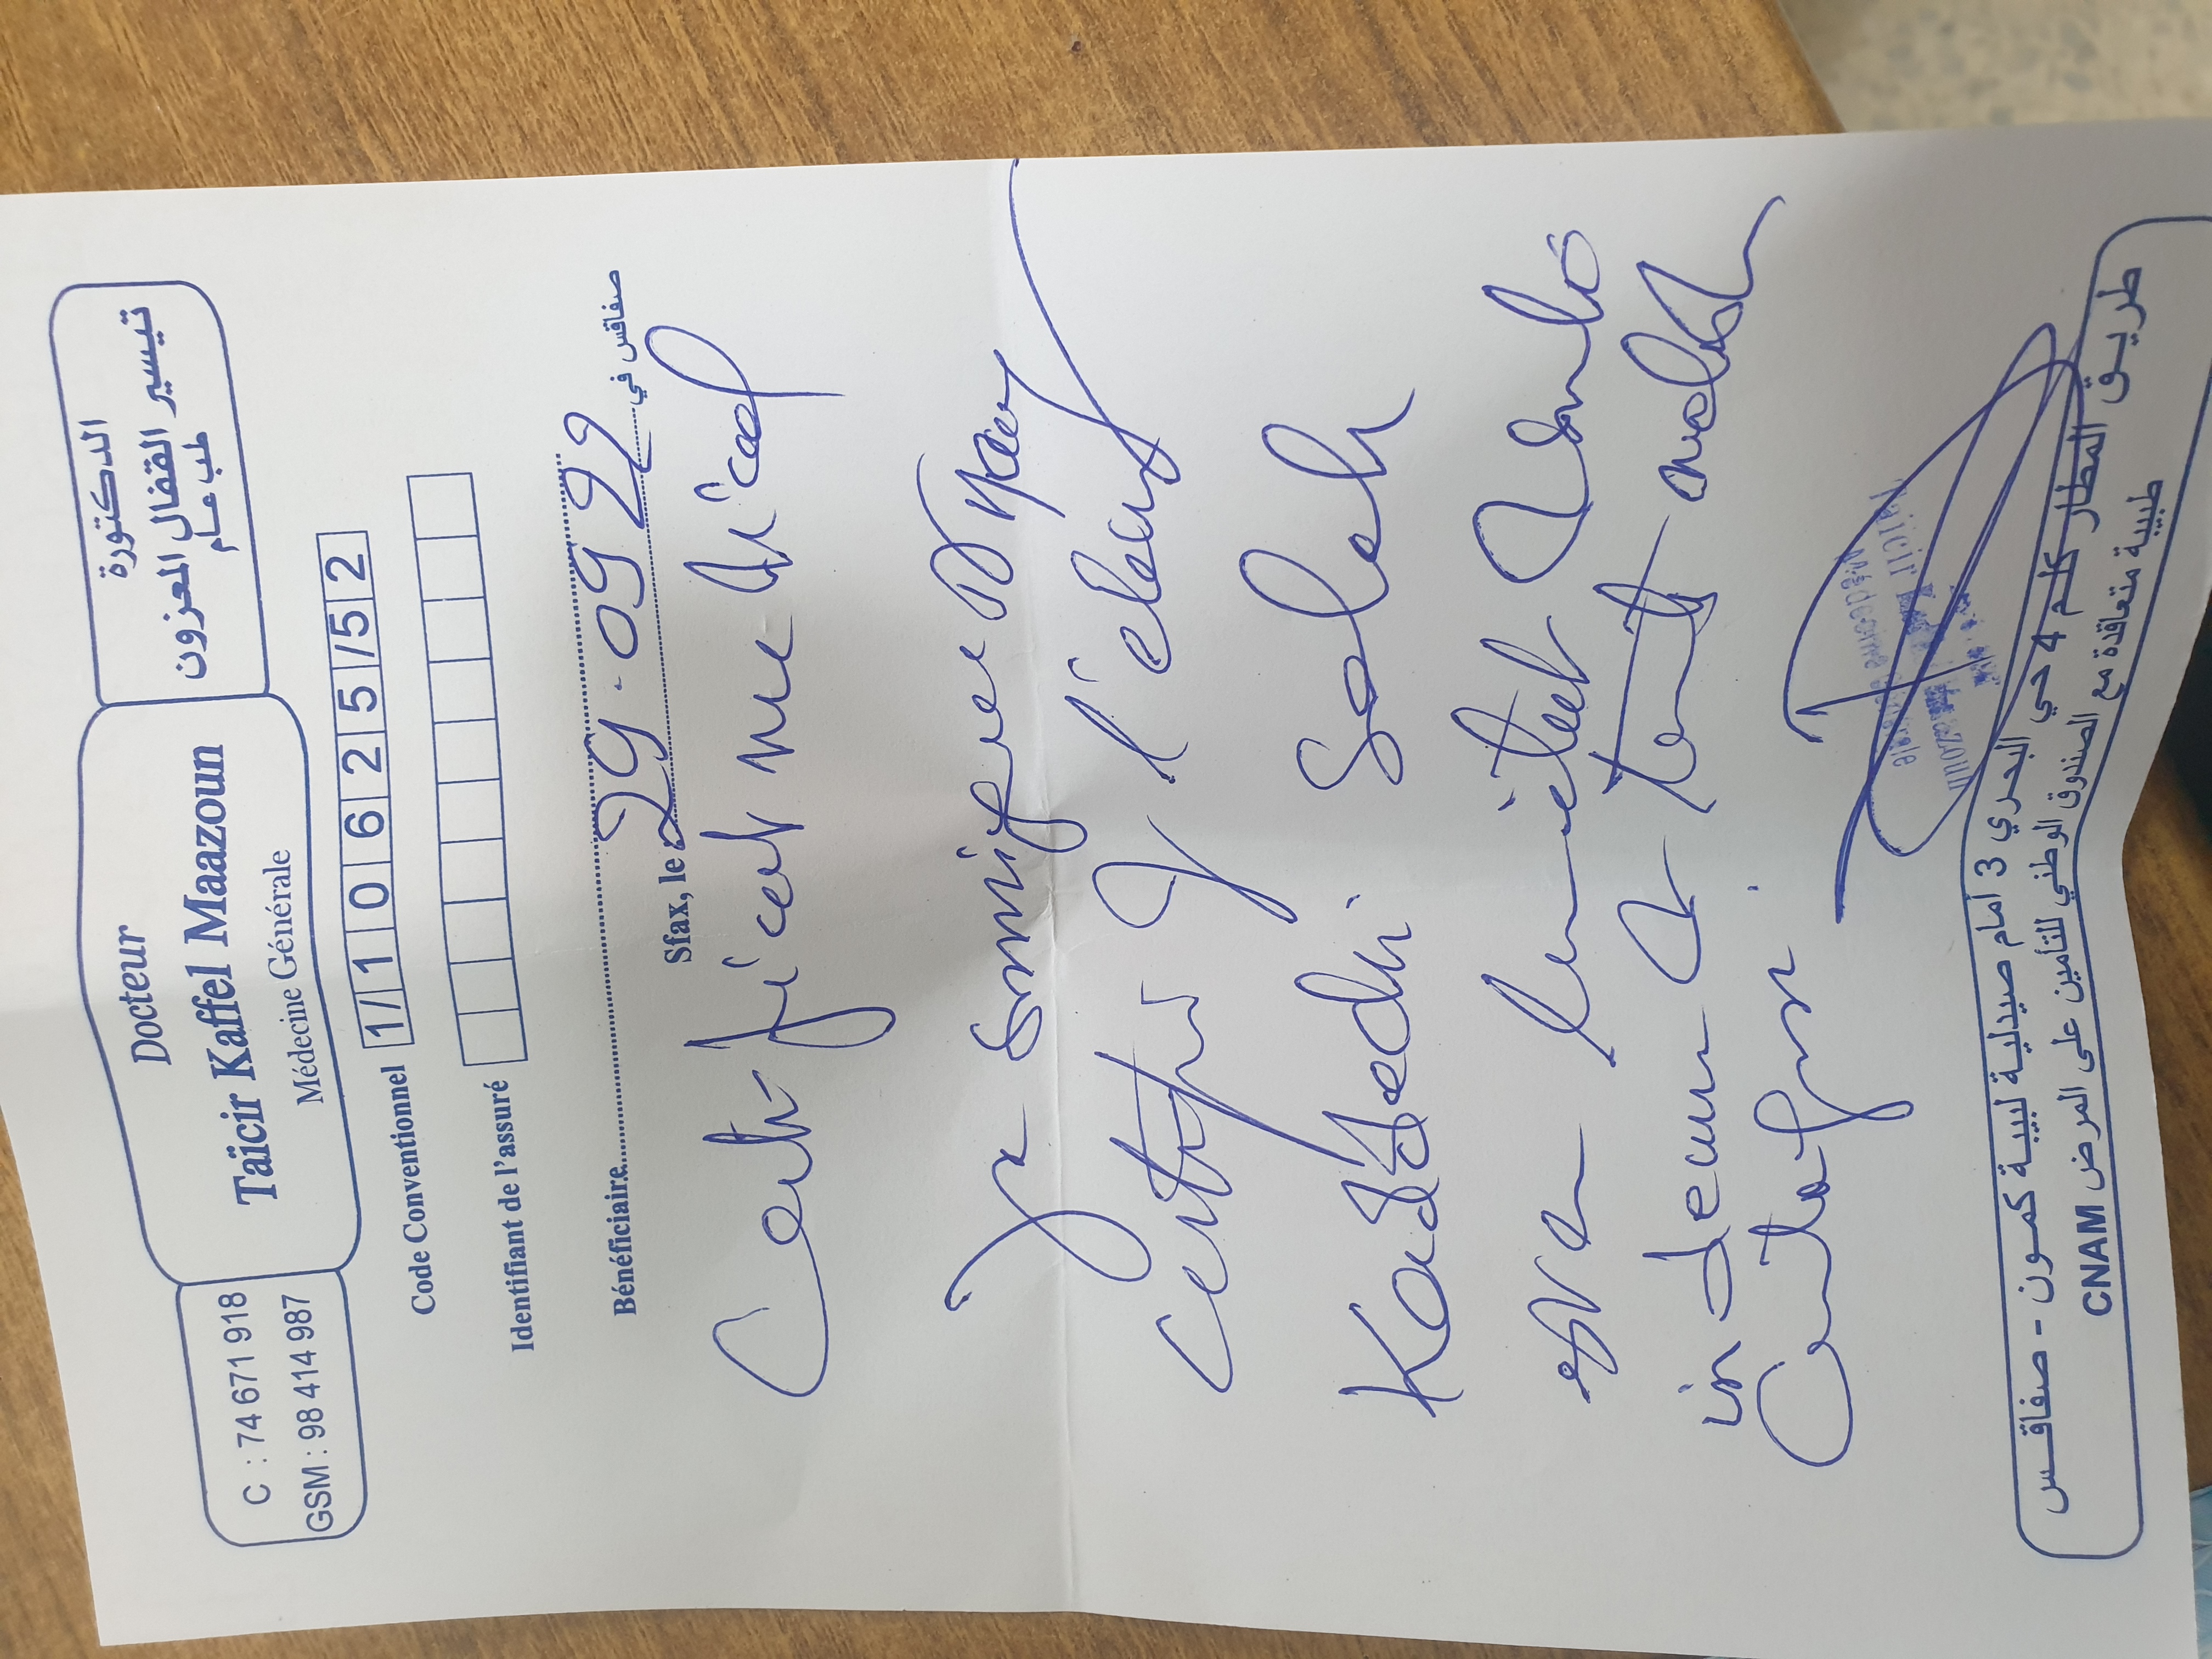 Docteur
Taïcir Kaffel Maazoun
Médecine Générale
الدكتورة
تيسير القفال المعزون
طب عام
C : 74 671 918
GSM : 98 414 987
Code Conventionnel 1/1062525/52
Identifiant de l'assuré
Bénéficiaire
Sfax, le 29.09 22 صفاقس في
Certificat médical
Je soussignée Dr
certifie q l'élève
Kaddechi Saleh
est en bonne santé
indemne de toute maladie
contagieuse.
Médecine Générale
طريق المطار كلم 4 حي البحري 3 أمام صيدلية لبيبة كمون - صفاقس
طبيبة متعاقدة مع الصندوق الوطني للتأمين على المرض CNAM